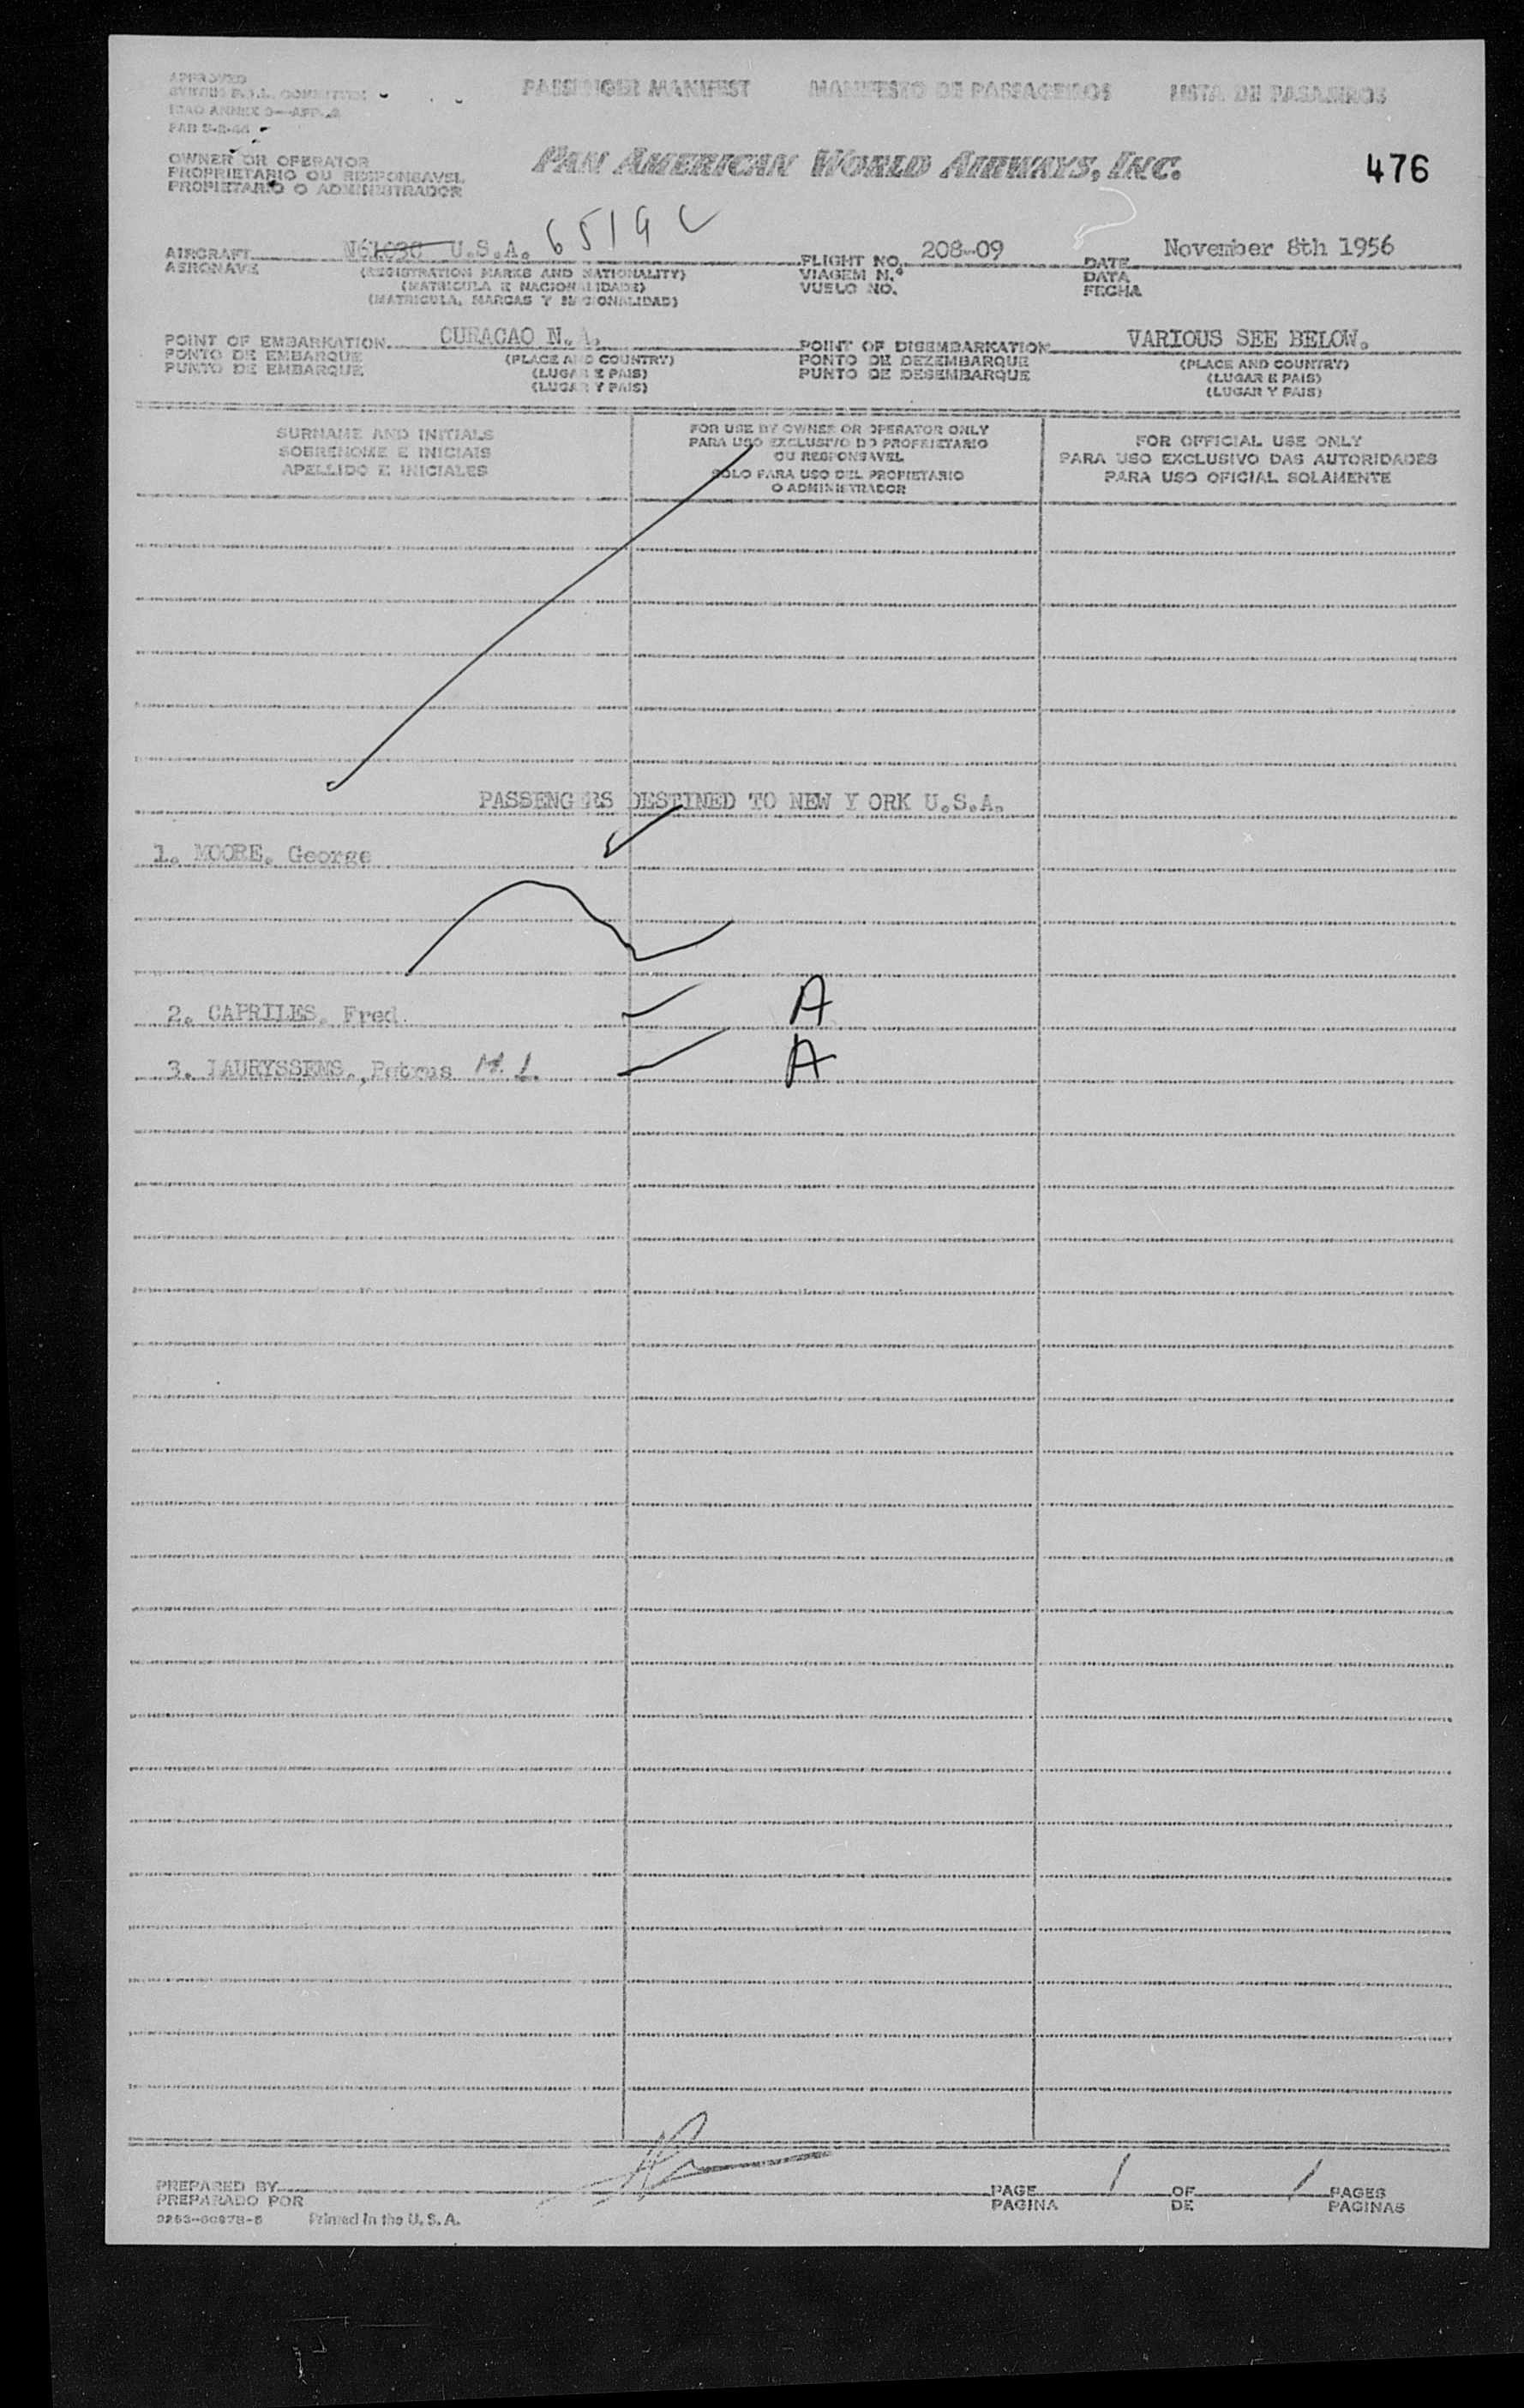 APPROVED
PASSENGER MANIFEST MANIFESTO DE PASSAGEIROS LISTA DE PASAJEROS
ICAO ANNEX 9—APP. 
OWNER OR OPERATOR
PROPRIETARIO OU RESPONSAVEL
PROPIETARIO O ADMINISTRADOR
PAN AMERICAN WORLD AIRWAYS, INC.
476
AIRCRAFT U.S.A. 6519C FLIGHT NO. 208-09 DATE November 8th 1956
AERONAVE (REGISTRATION MARKS AND NATIONALITY) VIAGEM N.º DATA
(MATRICULA E NACIONALIDADE) VUELO NO. FECHA
(MATRICULA, MARCAS Y NACIONALIDAD)
POINT OF EMBARKATION CURACAO N.A. POINT OF DISEMBARKATION VARIOUS SEE BELOW.
PONTO DE EMBARQUE (PLACE AND COUNTRY) PONTO DE DEZEMBARQUE (PLACE AND COUNTRY)
PUNTO DE EMBARQUE (LUGAR E PAIS) PUNTO DE DESEMBARQUE (LUGAR E PAIS)
(LUGAR Y PAIS) (LUGAR Y PAIS)
SURNAME AND INITIALS
SOBRENOME E INICIAIS
APELLIDO E INICIALES
FOR USE BY OWNER OR OPERATOR ONLY
PARA USO EXCLUSIVO DO PROPRIETARIO
OU RESPONSAVEL
SOLO PARA USO DEL PROPIETARIO
O ADMINISTRADOR
FOR OFFICIAL USE ONLY
PARA USO EXCLUSIVO DAS AUTORIDADES
PARA USO OFICIAL SOLAMENTE
PASSENGERS DESTINED TO NEW Y ORK U.S.A.
1. MOORE, George
2. CAPRILES, Fred. A
3. LAURYSSENS, Petrus M.L. A
PREPARED BY PAGE 1 OF 1 PAGES
PREPARADO POR PAGINA DE PAGINAS
Printed in the U. S. A.